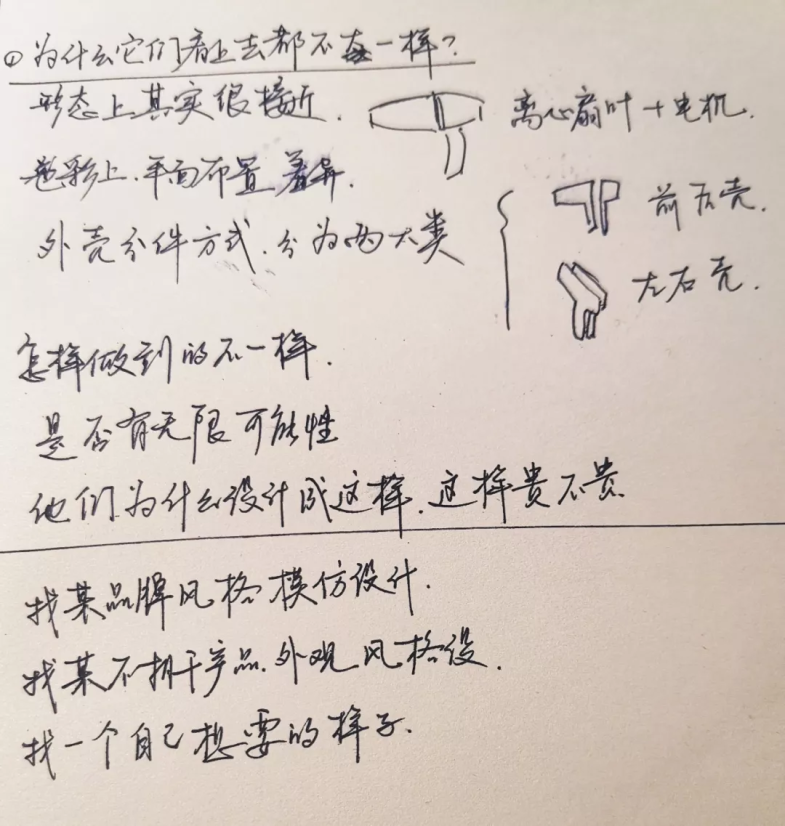 ①为什么它们看上去都不一样?
形态上其实很接近. 离心扇叶+电机.
色彩上.平面布置差异.
外壳分件方式.分为两大类
前后壳.
左右壳.
怎样做到的不一样.
是否有无限可能性
他们为什么设计成这样.这样贵不贵
找某品牌风格模仿设计.
找某不相干产品.外观风格设.
找一个自己想要的样子.